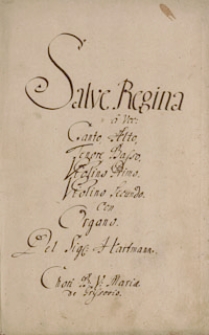 Salve Regina
à Voc:
Canto Alto,
Tenore Basso,
Violino Primo.
Violino Secundo.
Con
Organo.
Del Sigre: Hartmann.
Chori B. V. Mariæ